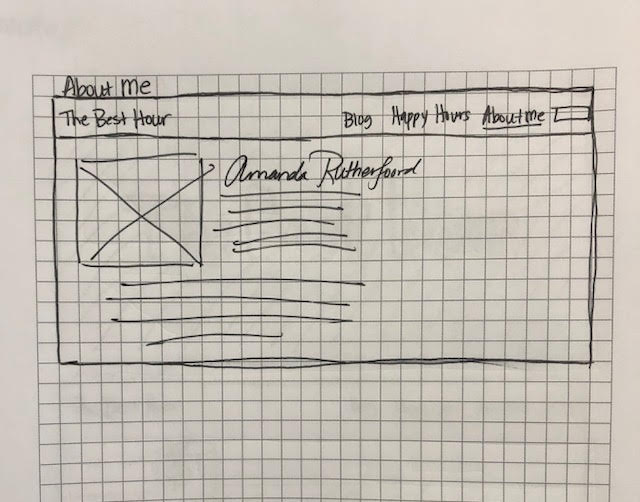 About me
The Best Hour Blog Happy Hours About me
Amanda Rutherfoord